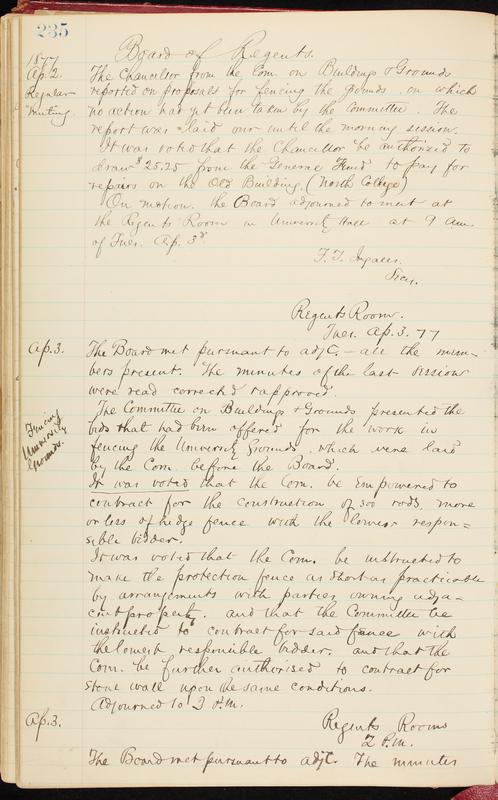 235
Board of Regents.
1877
Ap. 2.
Regular
meeting.
The Chancellor from the Com. on Buildings & Grounds
reported on proposals for fencing the grounds. on which
no action had yet been taken by the Committee. The
report was laid over until the morning session.
It was voted that the Chancellor be authorized to
draw $25.25 from the General Fund to pay for
repairs on the Old Building. (North College)
On motion. the Board adjourned to meet at
the Regents Room in University Hall at 9 am.
of Tues. Ap. 3d
F. T. Ingalls.
Secy.
Regents Room.
Tues. Ap. 3. 77
Ap. 3.
The Board met pursuant to adjt. - all the mem-
bers present. The minutes of the last session
were read corrected & approved.
Fencing
University
Grounds.
The Committee on Buildings & Grounds presented the
bids that had been offered for the work in
fencing the University Grounds. which were laid
by the Com. before the Board.
It was voted that the Com. be empowered to
contract for the construction of 300 rods, more
or less of hedge fence with the lowest respon=
sible bidder.
It was voted that the Com. be instructed to
make the protection fence as short as practicable
by arrangements with parties owning adja-
cent property. and that the Committee be
instructed to contract for said fence with
the lowest responsible bidder. and that the
Com. be further authorized to contract for
stone wall upon the same conditions.
Adjourned to 2 P.M.
Ap. 3.
Regents Rooms
2 P.M.
The Board met pursuant to adjt. The minutes